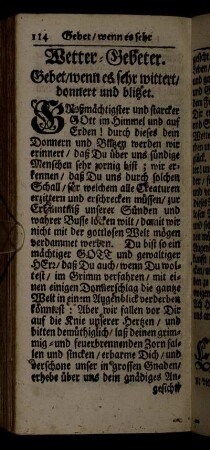 114 Gebet / wenn es sehr
Wetter-Gebeter.
Gebet / wenn es sehr wittert /
donnert und blitzet.
GRoßmächtigster und starcker
GOtt im Himmel und auf
Erden! durch dieses dein
Donnern und Blitzen werden wir
erinnert / daß Du über uns sündige
Menschen sehr zornig bist; wir er-
kennen / daß Du uns durch solchen
Schall / für welchem alle Creaturen
erzittern und erschrecken müssen / zur
Erkänntnis unserer Sünden und
wahrer Busse locken wilt / damit wir
nicht mit der gottlosen Welt mögen
verdammet werden. Du bist so ein
mächtiger GOTT und gewaltiger
HErr / daß Du auch / wenn Du wol-
test / im Grimm verfahren / mit ei-
nen einigen Donnerschlag die gantze
Welt in einem Augenblick verderben
könntest: Aber wir fallen vor Dir
auf die Knie unserer Hertzen / und
bitten demüthiglich / laß deinen grim-
mig- und feuerbrennenden Zorn fal-
len und sincken / erbarme Dich / und
verschone unser in grossen Gnaden /
erhebe über uns dein gnädiges An-
gesicht